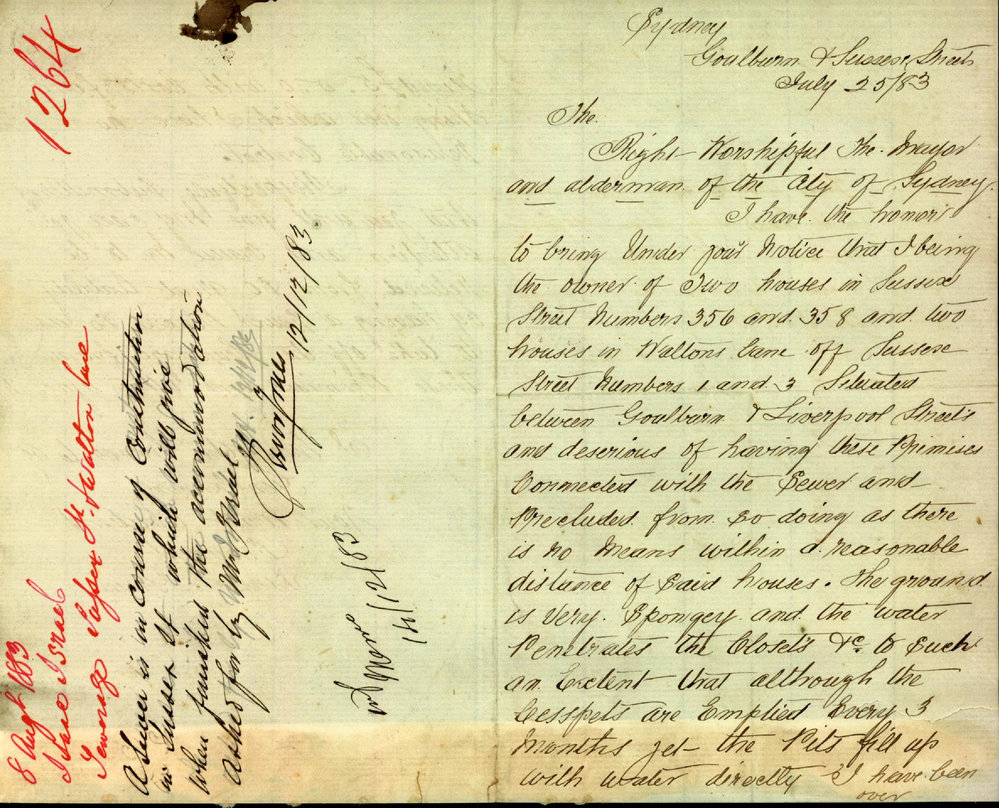 1264
8 Augt 1883
Isaac Israel
Sewerage Sussex St. & Walton Lane
A Sewer is in course of Construction
in Sussex St which will give
when finished the accommodation
asked for by Mr Israel
12/12/83
14/12/83
Sydney
Goulburn & Sussex Streets
July 25/83
The.
Right Worshipful The Mayor
and alderman of the City of Sydney.
I have the honor
to bring Under your Notice that I being
the owner of Two houses in Sussex
Street Numbers 356 and 358 and two
houses in Waltons Lane off Sussex
Street Numbers 1 and 3 Situated
between Goulburn & Liverpool Streets
and desirious of having these Primises
Connected with the Sewer and
Precluded from so doing as there
is no Means within a reasonable
distance of Said houses. The ground
is Very Spongey and the water
Penetrates the Closets &c. to Such
an Extent that although the
Cesspets are Emptied Every 3
Months yet the Pits fill up
with water directly I have been
over